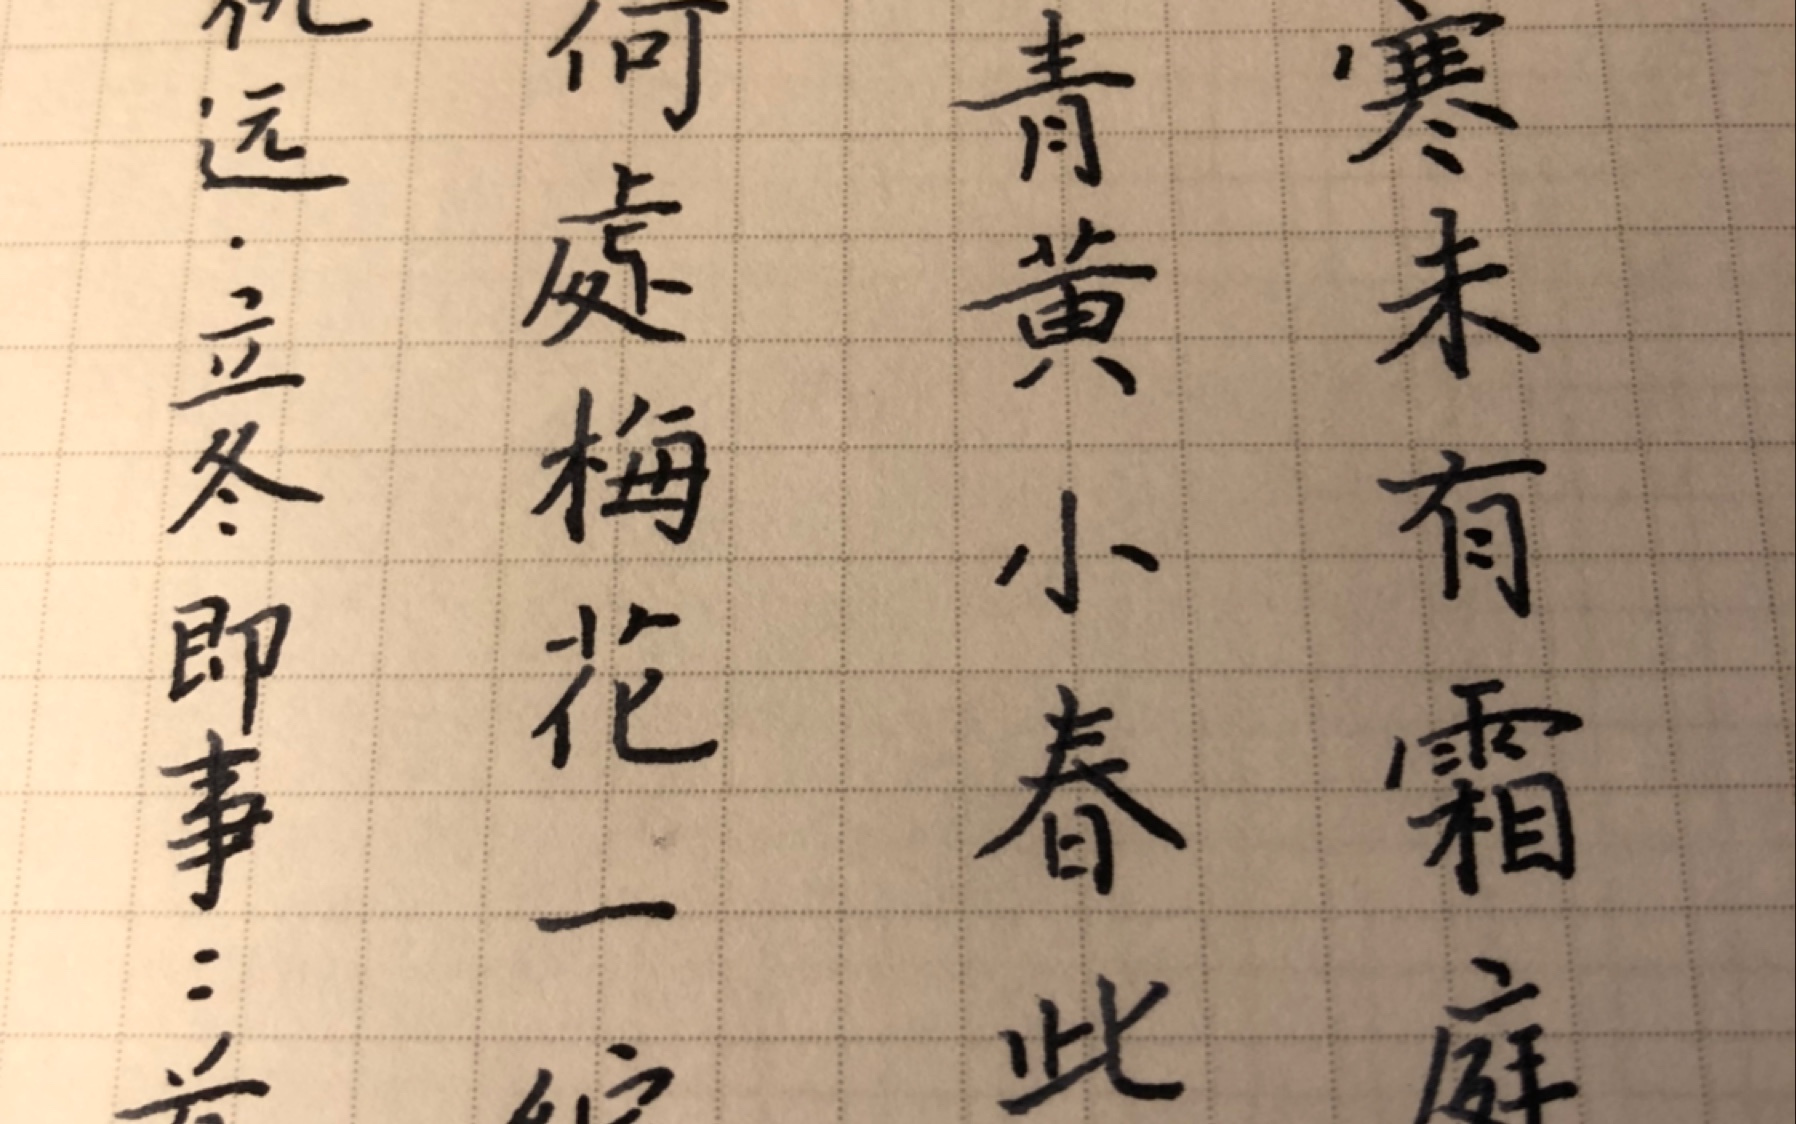 寒未有霜庭
青黄小春此
何處梅花一綻
远·立冬即事二首